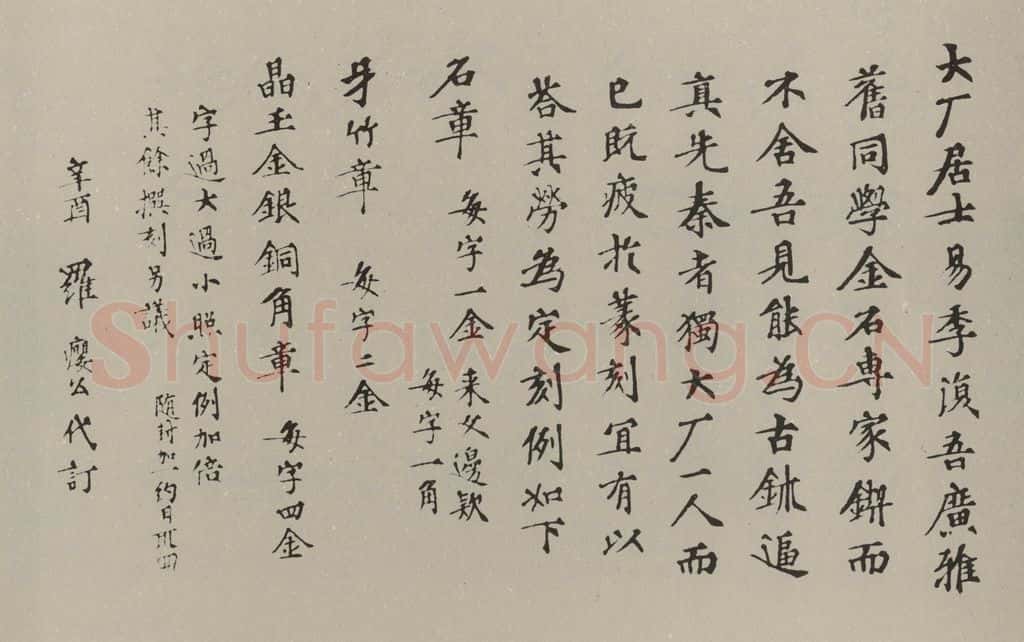 大厂居士易季復吾廣雅
舊同學金石專家鍥而
不舍吾見能為古鉥逼
真先秦者獨大厂一人而
已既疲於篆刻宜有以
荅其勞為定刻例如下
石章 每字一金 来文邊欵
每字一角
牙竹章 每字二金
晶玉金銀銅角章 每字四金
字過大過小照定例加倍
其餘撰刻另議 随封加一 約日
辛酉 羅癭公代訂
Shufawang.CN